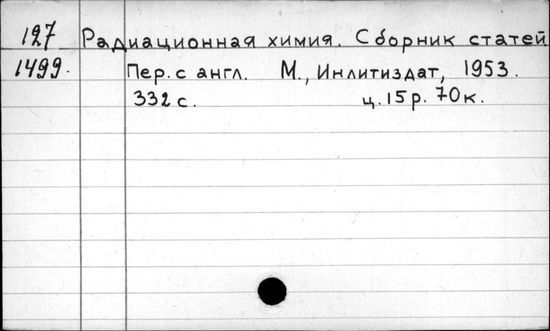 127 Радиационная химия. Сборник статей
1499. Пер. с англ. М., Инлитиздат, 1953.
332 с. ц. 15 р. 70 к.